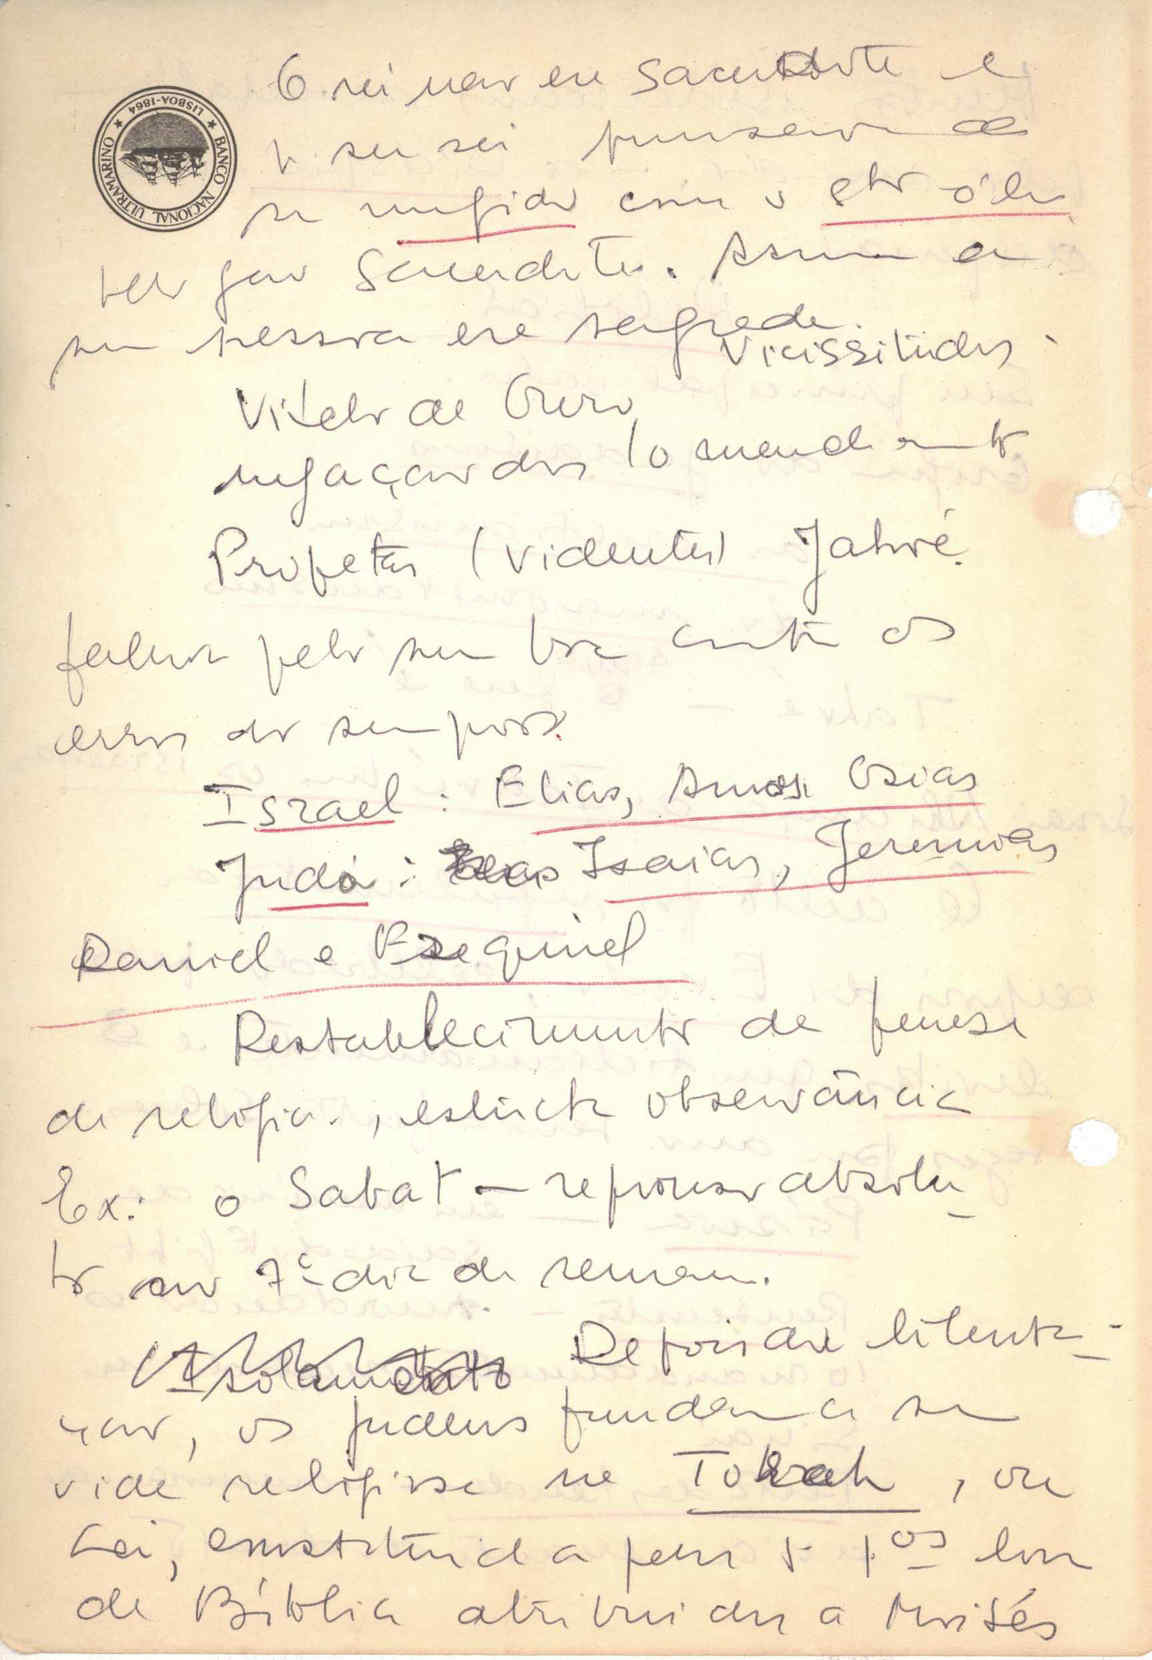 BANCO NACIONAL ULTRAMARINO
LISBOA-1864
O rei não era Sacerdote e
p ser rei precisava de
se ungido com o sto óleo
pelo grão Sacerdote. Assim a
sua pessoa era sagrada.
Vicissitudes
Vitelo de Ouro
negação dos 10 mandamentos
Profetas (videntes) Jahvé
falava pela sua boca contra os
erros do seu povo.
Israel: Elias, Amos Osias
Judá: Isaias, Jeremias
Daniel e Ezequiel
Restablecimento da
da religião, estricta observância
Ex: o Sabat – repouso absolu-
to ao 7º dia da semana.
Isolamento Depois da liberta-
ção, os judeus fundam a sua
vida religiosa na Torah, ou
Lei, constituida pelos 5 1os livros
da Bíblia atribuidos a Moisés